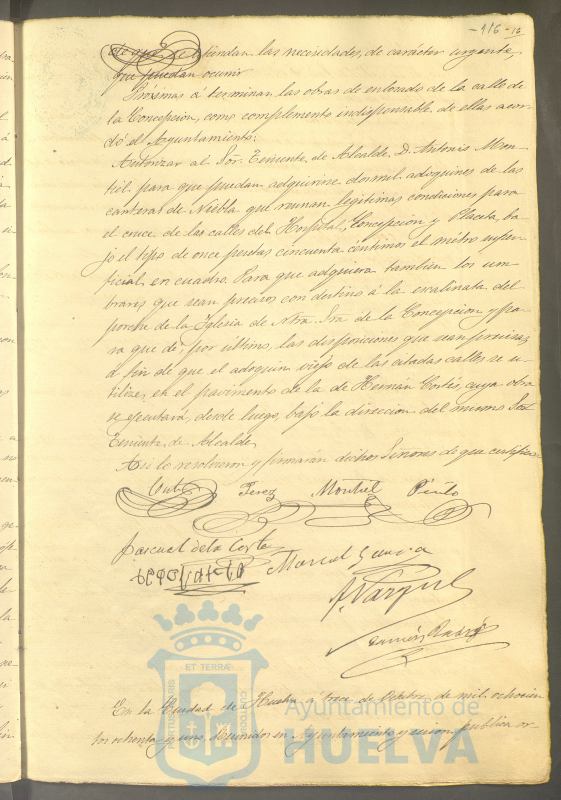 -116- 16
de que se atiendan las necesidades, de carácter urgente,
que puedan ocurrir
Próximas á terminar las obras de enlosado de la calle de
la Concepcion, como complemento indispensable de ellas acor-
dó el Ayuntamiento:
Autorizar al Sor. Teniente de Alcalde, D. Antonio Mon-
tiel para que puedan adquirirse dos mil adoquines de las
canteras de Niebla que reunan legitimas condiciones para
el cruce de las calles del Hospital, Concepcion y Placeta, ba-
jo el tipo de once pesetas cincuenta céntimos el métro super-
ficial, en cuadro. Para que adquiera tambien los um-
brares que sean precisos con destino á la escalinata del
porche de la Iglesia de Ntra. Sra. de la Concepcion y pa-
ra que dé, por último, las disposiciones que sean precisas,
á fin de que el adoquin viejo de las citadas calles se u-
tilize, en el pavimento de la de Hernán Cortés, cuya obra
se ejecutará, desde luego, bajo la direccion del mismo Sor.
Teniente de Alcalde,
Asi lo resolvieron y firmarán dichos Señores de que certifico
Perez Montiel Pinto
Pascual de la Corte
Manuel Garcia
A. Vazquez
En la Ciudad de Huelva á trece de Octubre de mil ochocien
tos ochenta y uno, reunidos en Ayuntamiento y sesion publica or
ET TERRÆ
PORTUS MARIS
CUSTODIA
Ayuntamiento de
HUELVA